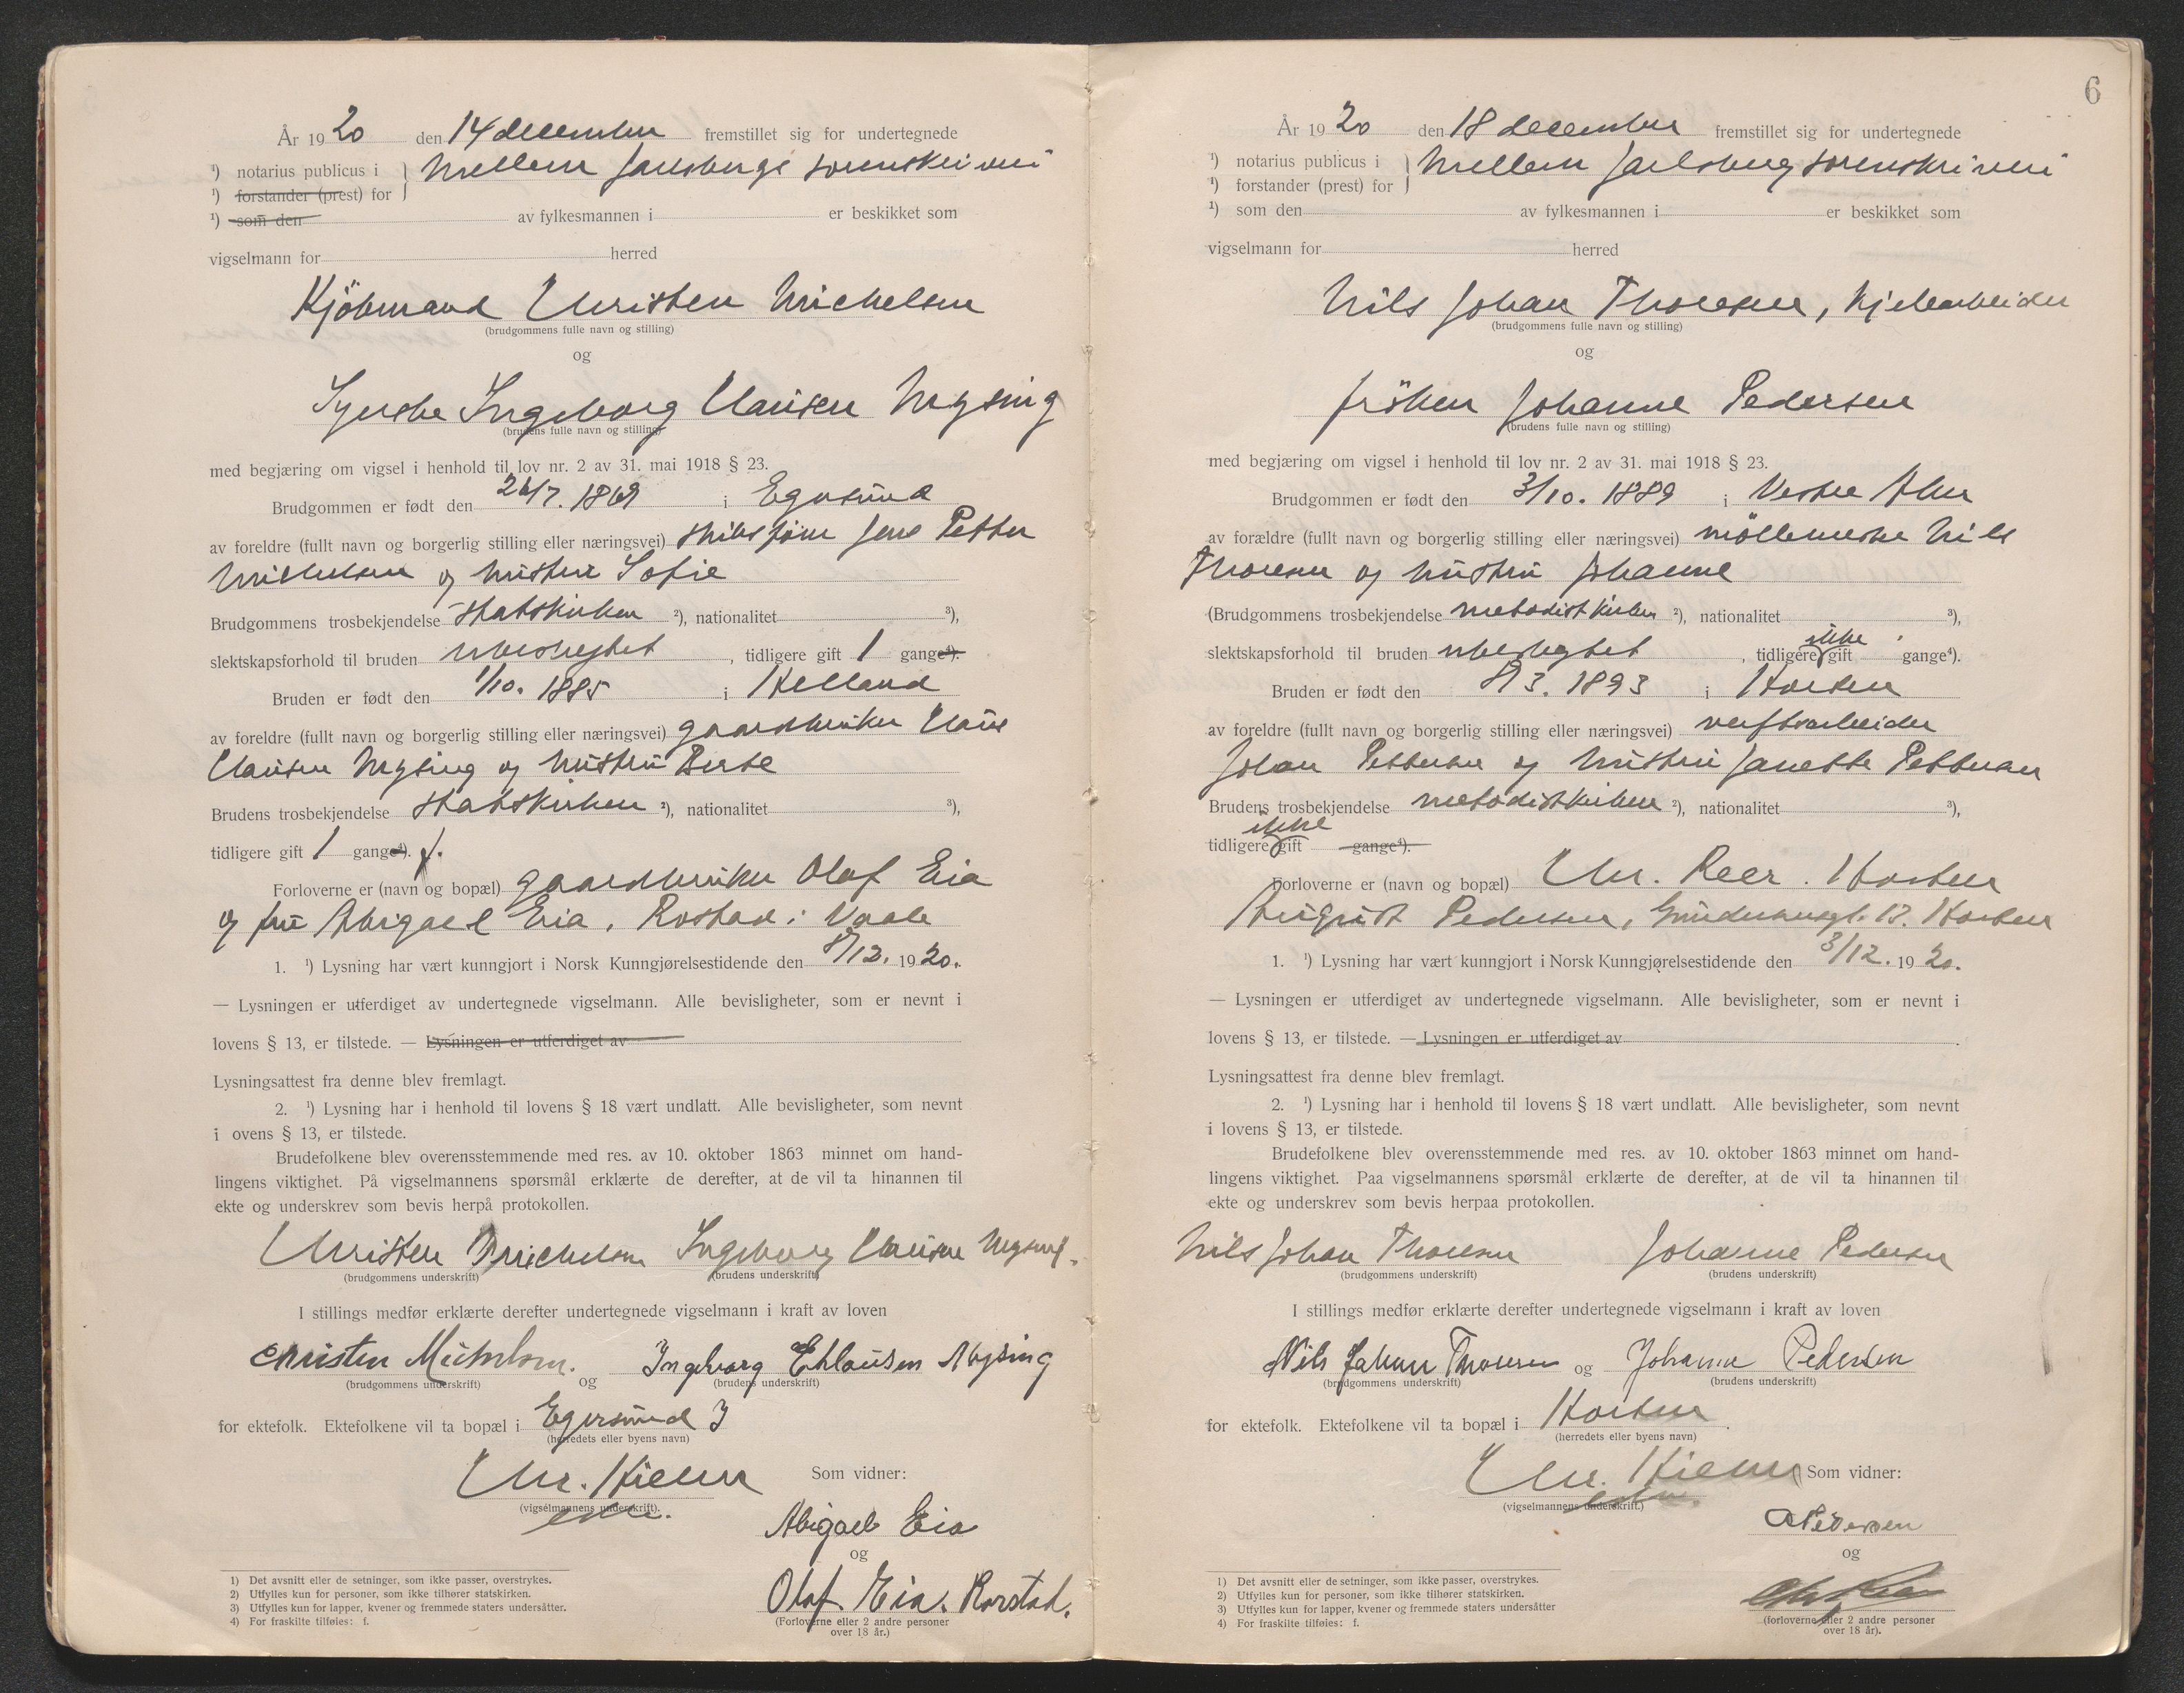 År 1920 den 14 december fremstillet sig for undertegnede
¹) notarius publicus i } mellem Jarlsbergs sorenskriveri
¹) forstander (prest) for
¹) som den av fylkesmannen i er beskikket som
vigselmann for herred
Kjöbmand Christen Michelsen
(brudgommens fulle navn og stilling)
og
Syerske Ingeborg Clausen Mysing
(brudens fulle navn og stilling)
med begjæring om vigsel i henhold til lov nr. 2 av 31. mai 1918 § 23.
Brudgommen er født den 26/7. 1869 i Egersund
av foreldre (fullt navn og borgerlig stilling eller næringsvei) skibsförer Jens Petter
Michelsen og hustru Sofie
Brudgommens trosbekjendelse statskirken ²), nationalitet ³),
slektskapsforhold til bruden ubeslegtet, tidligere gift 1 gange⁴).
Bruden er født den 1/10. 1885 i Helland
av foreldre (fullt navn og borgerlig stilling eller næringsvei) gaardbruker Claus
Clausen Mysing og hustru Berte
Brudens trosbekjendelse statskirken ²), nationalitet ³),
tidligere gift 1 gange⁴). f.
Forloverne er (navn og bopæl) gaardbruker Olaf Eia
og fru Abigael Eia, Rostad i Vaale
1. ¹) Lysning har vært kunngjort i Norsk Kunngjørelsestidende den 8/12. 1920.
— Lysningen er utferdiget av undertegnede vigselmann. Alle bevisligheter, som er nevnt i
lovens § 13, er tilstede. — Lysningen er utferdiget av
Lysningsattest fra denne blev fremlagt.
2. ¹) Lysning har i henhold til lovens § 18 vært undlatt. Alle bevisligheter, som nevnt
i ovens § 13, er tilstede.
Brudefolkene blev overensstemmende med res. av 10. oktober 1863 minnet om hand-
lingens viktighet. På vigselmannens spørsmål erklærte de derefter, at de vil ta hinannen til
ekte og underskrev som bevis herpå protokollen.
Christen Michelsen Ingeborg Clausen Mysing.
(brudgommens underskrift) (brudens underskrift)
I stillings medfør erklærte derefter undertegnede vigselmann i kraft av loven
Christen Michelsen. og Ingeborg Chlausen Mysing
(brudgommens underskrift) (brudens underskrift)
for ektefolk. Ektefolkene vil ta bopæl i Egersund
(herredets eller byens navn)
Chr. Som vidner:
(vigselmannens underskrift).
Abigael Eia
og
Olaf Eia. Rorstad.
(Forloverne eller 2 andre personer
over 18 år.)
1) Det avsnitt eller de setninger, som ikke passer, overstrykes.
2) Utfylles kun for personer, som ikke tilhører statskirken.
3) Utfylles kun for lapper, kvener og fremmede staters undersåtter.
4) For fraskilte tilføies: f.
6
År 1920 den 18 december fremstillet sig for undertegnede
¹) notarius publicus i } mellem Jarlsberg sorenskriveri
¹) forstander (prest) for
¹) som den av fylkesmannen i er beskikket som
vigselmann for herred
Nils Johan Thoresen, kjelearbeider
(brudgommens fulle navn og stilling)
og
fröken Johanne Pedersen
(brudens fulle navn og stilling)
med begjæring om vigsel i henhold til lov nr. 2 av 31. mai 1918 § 23.
Brudgommen er født den 3/10. 1889 i Vestre Aker
av forældre (fullt navn og borgerlig stilling eller næringsvei) möllemester Nils
Thoresen og hustru Johanne
(Brudgommens trosbekjendelse metodistkirken ²), nationalitet ³),
slektskapsforhold til bruden ubeslegtet, tidligere ikke gift gange⁴).
Bruden er født den 8/3. 1893 i Horten
av foreldre (fullt navn og borgerlig stilling eller næringsvei) verftsarbeider
Johan Pettersen og hustru Janette Pettersen
Brudens trosbekjendelse metodistkirken ²), nationalitet ³),
tidligere ikke gift gange⁴).
Forloverne er (navn og bopæl) Chr. Reer. Horten
August Pedersen, 13. Horten
1. ¹) Lysning har vært kunngjort i Norsk Kunngjørelsestidende den 3/12. 1920.
— Lysningen er utferdiget av undertegnede vigselmann. Alle bevisligheter, som er nevnt i
lovens § 13, er tilstede. — Lysningen er utferdiget av .
Lysningsattest fra denne blev fremlagt.
2. ¹) Lysning har i henhold til lovens § 18 vært undlatt. Alle bevisligheter, som nevnt
i lovens § 13, er tilstede.
Brudefolkene blev overensstemmende med res. av 10. oktober 1863 minnet om hand-
lingens viktighet. Paa vigselmannens spørsmål erklærte de derefter, at de vil ta hinannen til
ekte og underskrev som bevis herpaa protokollen.
Nils Johan Thoresen Johanne Pedersen
(brudgommens underskrift) (brudens underskrift)
I stillings medfør erklærte derefter undertegnede vigselmann i kraft av loven
Nils Johan Thoresen og Johanne Pedersen
(brudgommens underskrift) (brudens underskrift)
for ektefolk. Ektefolkene vil ta bopæl i Horten.
(herredets eller byens navn)
Chr. Som vidner:
(vigselmannens underskrift.)
A Pedersen
og
(forloverne eller 2 andre personer
over 18 år).
1) Det avsnitt eller de setninger, som ikke passer, overstrykes.
2) Utfylles kun for personer, som ikke tilhører statskirken.
3) Utfylles kun for lapper, kvener og fremmede staters undersåtter
4) For fraskilte tilføies: f.